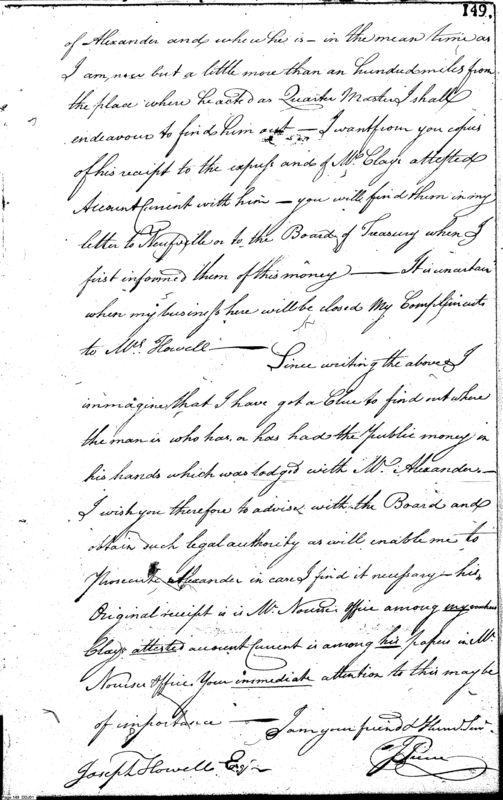 149.
of Alexander and where he is – in the mean time as
I am, now but a little more than an hundred miles from
the place where he acted as Quarter Master I shall
endeavour to find him out — I want from you copies
of his receipt to the express and of Mr. Clays attested
Account Current with him – you will find them in my
letter to Neufville or to the Board of Treasury when I
first informed them of this money — It is uncertain
when my business here will be closed My Compliments
to Mrs. Howell —
Since writing the above I
immagine that I have got a Clue to find out where
the man is who has, or has had the Public money in
his hands which was lodged with Mr. Alexanders –
I wish you therefore to advise with the Board and
obtain such legal authority as will enable me to
Prosecute Alexander in case I find it necessary – his
Original receipt is in Mr. Nourse Office among my
Clays attested account Current is among his papers in Mr.
Nourse Office. Your immediate attention to this may be
of importance — I am your friend & Hum Ser
Joseph Howell Esqr
Page 149 DDJD1